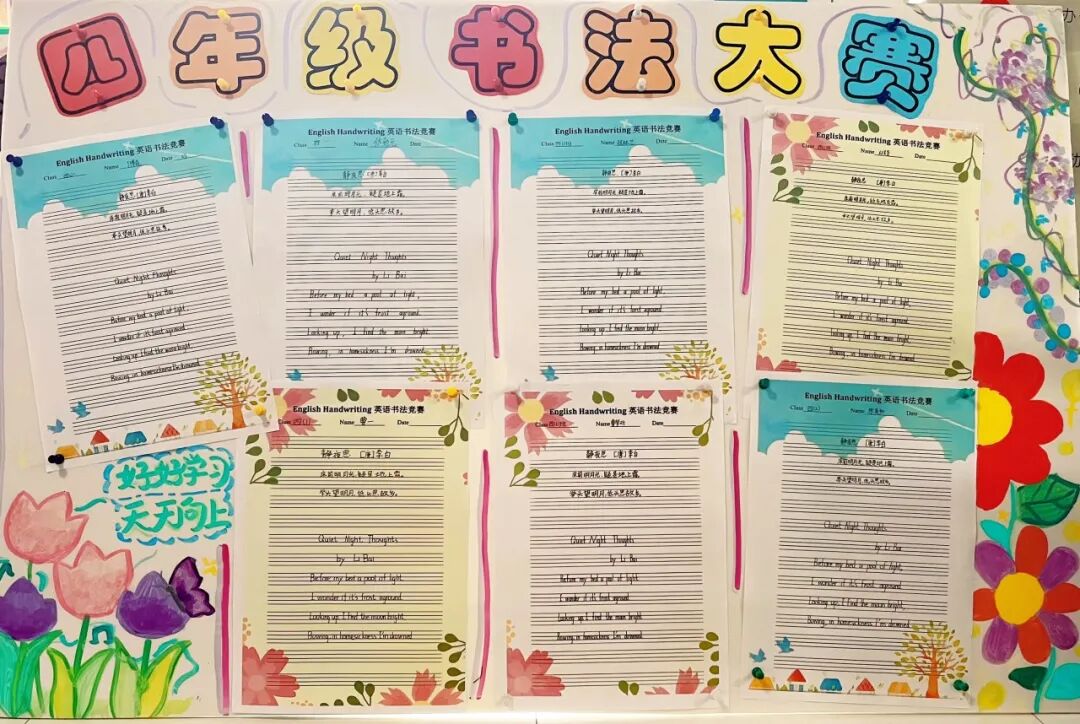 四年级书法大赛
English Handwriting 英语书法竞赛
Class Name Date
静夜思 [唐]李白
床前明月光,疑是地上霜。
举头望明月,低头思故乡。
Quiet Night Thoughts
by Li Bai
Before my bed a pool of light,
I wonder if it's frost aground.
Looking up, I find the moon bright.
Bowing, in homesickness I'm drowned.
English Handwriting 英语书法竞赛
Class Name Date
静夜思 [唐]李白
床前明月光,疑是地上霜。
举头望明月,低头思故乡。
Quiet Night Thoughts
by Li Bai
Before my bed a pool of light,
I wonder if it's frost aground.
Looking up, I find the moon bright.
Bowing, in homesickness I'm drowned.
English Handwriting 英语书法竞赛
Class Name Date
静夜思 [唐]李白
床前明月光,疑是地上霜。
举头望明月,低头思故乡。
Quiet Night Thoughts
by Li Bai
Before my bed a pool of light,
I wonder if it's frost aground.
Looking up I find the moon bright,
Bowing, in homesickness I'm drowned.
English Handwriting 英语书法竞赛
Class Name Date
静夜思 [唐]李白
床前明月光,疑是地上霜。
举头望明月,低头思故乡。
Quiet Night Thoughts
by Li Bai
Before my bed a pool of light,
I wonder if it's frost aground.
Looking up, I find the moon bright,
Bowing, in homesickness I'm drowned.
好好学习
天天向上
English Handwriting 英语书法竞赛
Class 四(1) Name 覃一 Date
静夜思 [唐]李白
床前明月光,疑是地上霜。
举头望明月,低头思故乡。
Quiet Night Thoughts
by Li Bai
Before my bed a pool of light
I wonder if it's frost aground.
Looking up, I find the moon bright
Bowing, in homesickness I'm drowned
English Handwriting 英语书法竞赛
Class Name Date
静夜思 [唐]李白
床前明月光,疑是地上霜。
举头望明月,低头思故乡。
Quiet Night Thoughts
by Li Bai
Before my bed a pool of light
I wonder if it's frost aground
Looking up, I find the moon bright
Bowing, in homesickness I'm drowned.
English Handwriting 英语书法竞赛
Class Name Date
静夜思 [唐]李白
床前明月光,疑是地上霜。
举头望明月,低头思故乡。
Quiet Night Thoughts
by Li Bai
Before my bed a pool of light,
I wonder if it's frost aground.
Looking up, I find the moon bright,
Bowing, in homesickness I'm drowned.